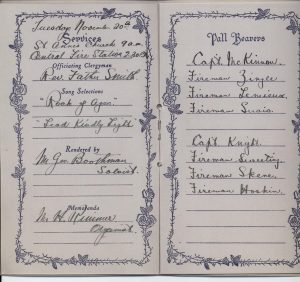 Tuesday November 20th
Services
St Agnes Church 9 a.m.
Central Fire Station 2.30 P.M.
Officiating Clergyman
Rev. Father Smith
Song Selections
"Rock of Ages"
"Lead Kindly Light"
Rendered by
Mr. Geo. Boothman
Soloist.
Memoranda
Mr. H. Kimmer
Organist.
Pall Bearers
Capt. McKinnon.
Fireman Zingle
Fireman Lemieux.
Fireman
Capt. Knight.
Fireman Sweeting
Fireman Skene.
Fireman Hoskin.